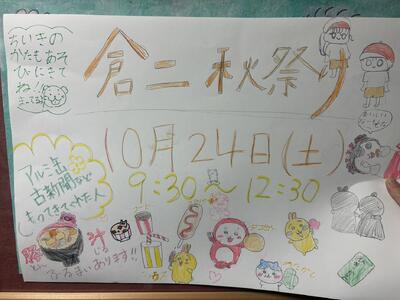 ちいきの
かたもあそ
びにきて
ね!!
まってるよ
倉二秋祭り
10月24日(土)
9:30～12:30
アルミ缶
古新聞など
もってきてくれた人
豚汁
ふるまいあります!!